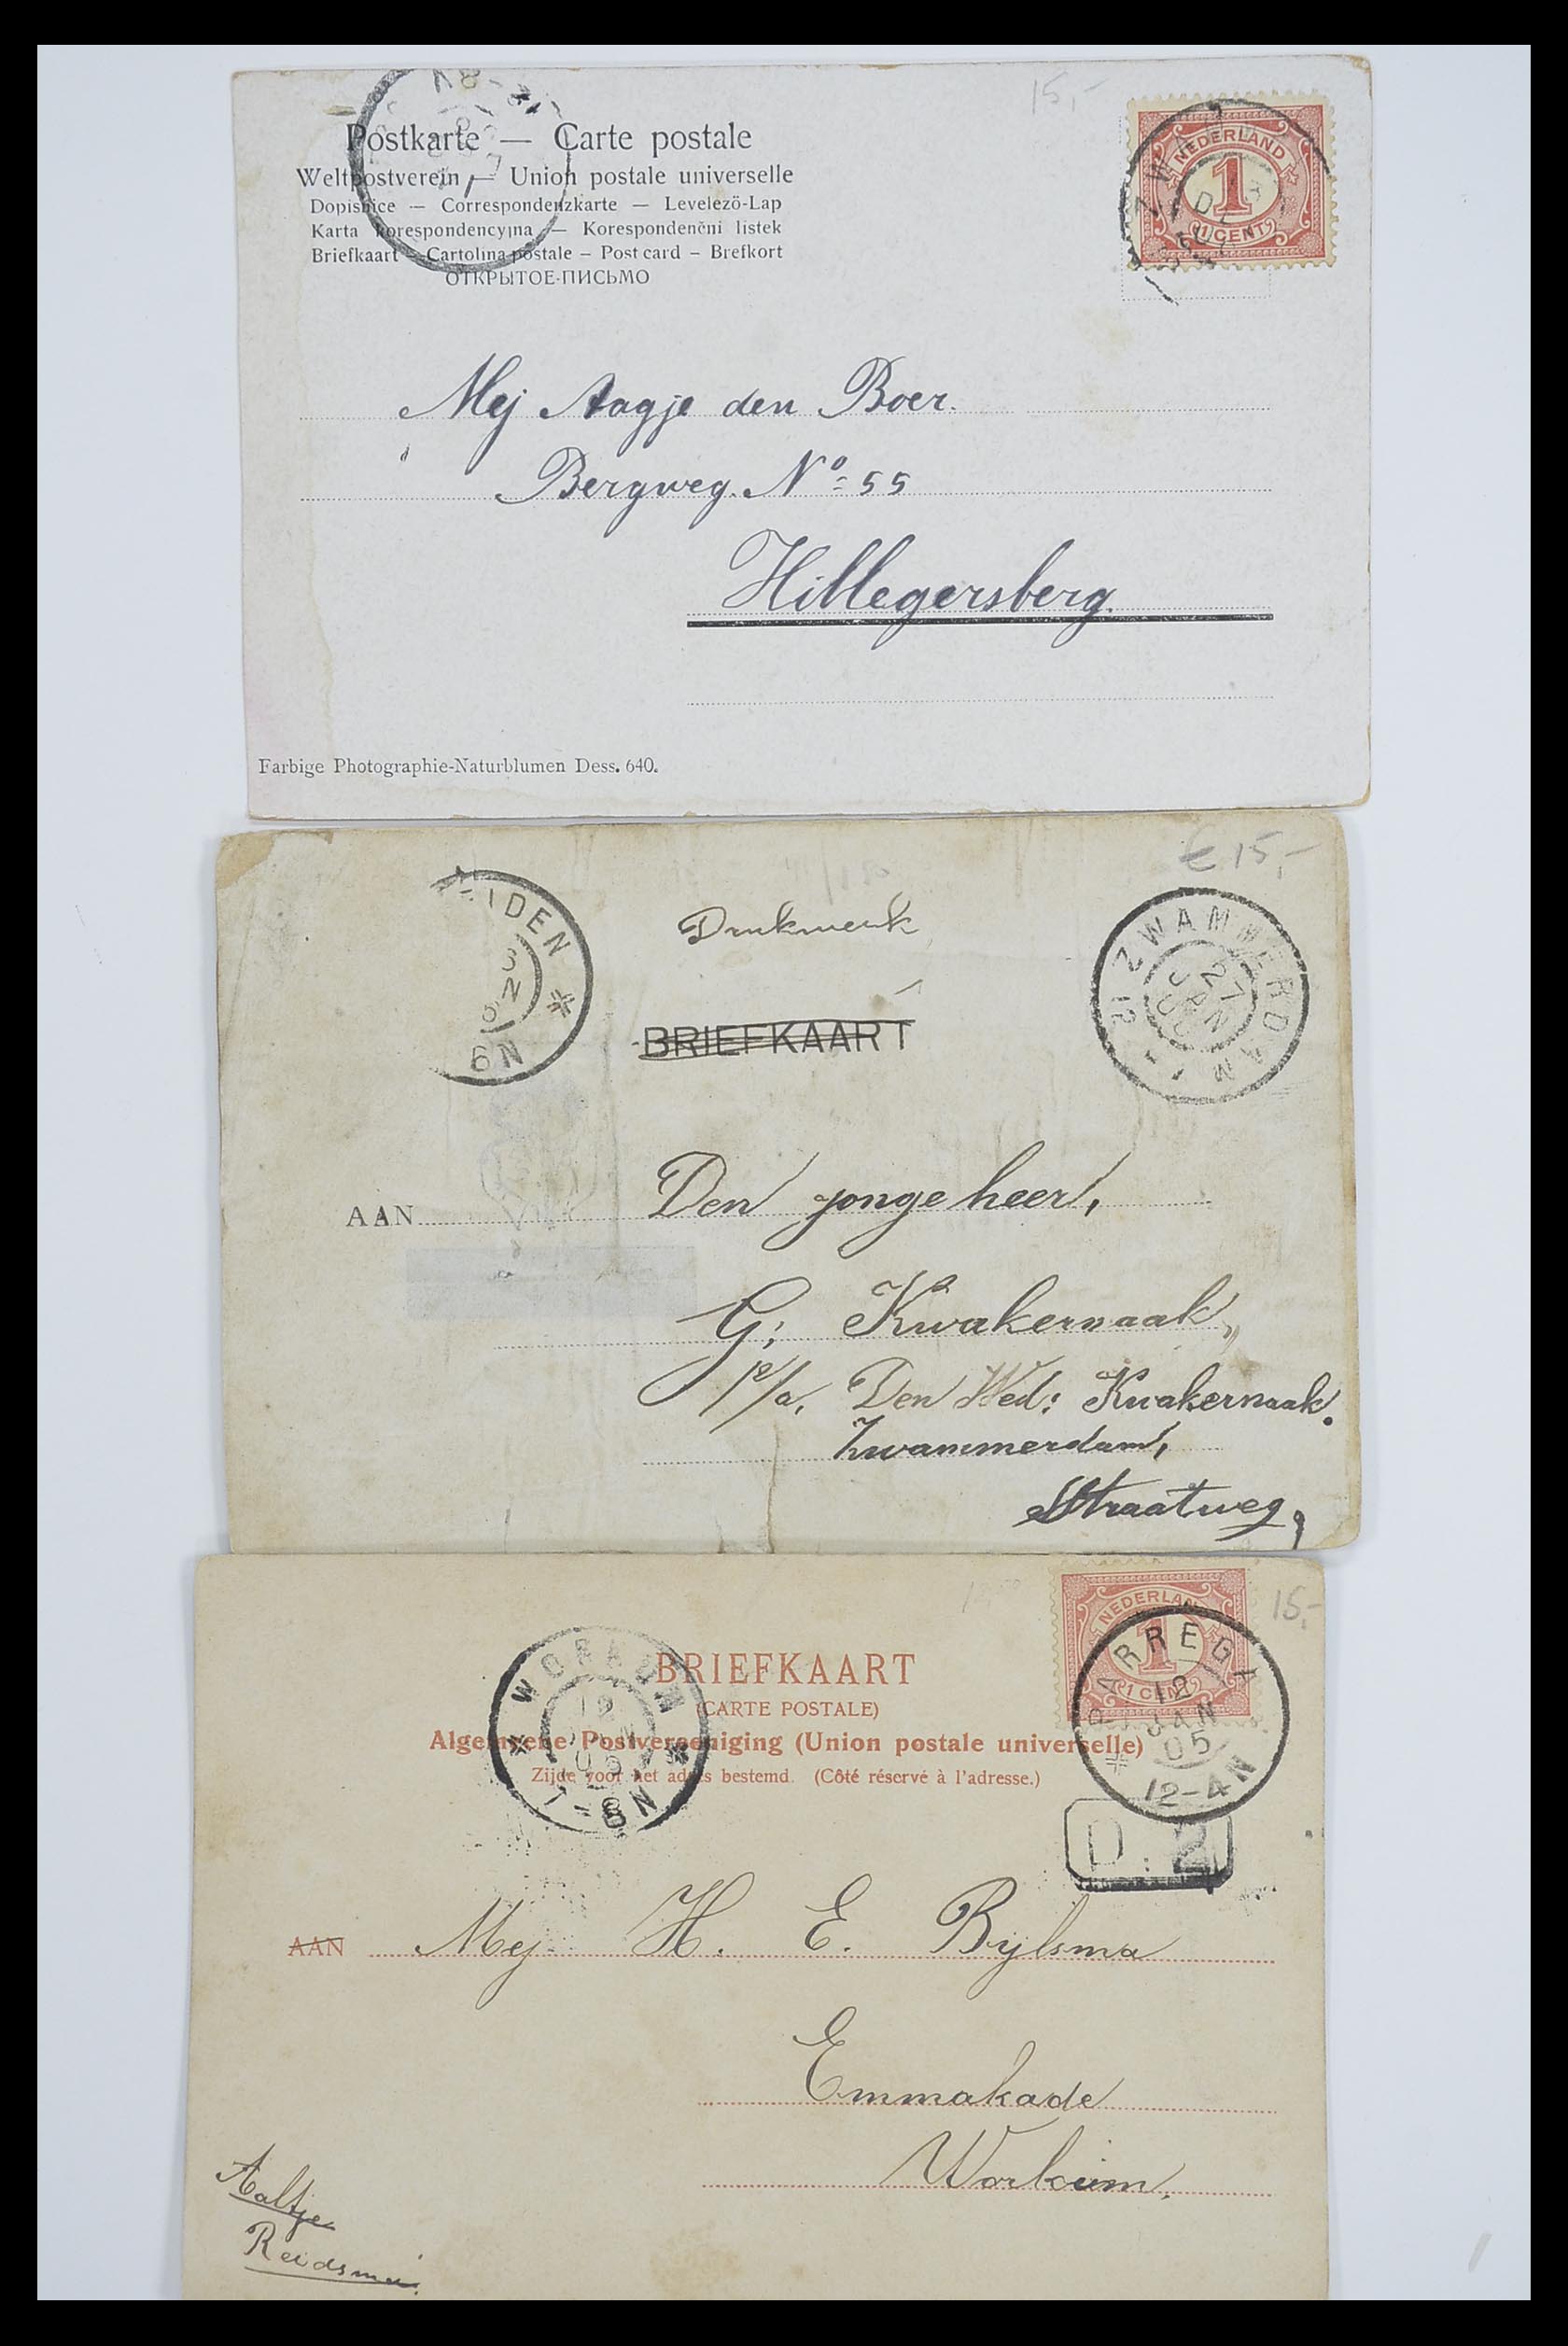 15,-
Postkarte — Carte postale
Weltpostverein — Union postale universelle
Dopisnice — Correspondenzkarte — Levelező-Lap
Karta korespondencyjna — Korespondenční listek
Briefkaart – Cartolina postale – Post card – Brefkort
ОТКРЫТОЕ-ПИСЬМО
NEDERLAND
1
1 CENT
Mej Aagje den Boer.
Bergweg. No 55
Hillegersberg.
Farbige Photographie-Naturblumen Dess. 640.
€ 15,-
IDEN
6N
Drukwerk
ZWAMMERDAM
27
BRIEFKAART
AAN Den jongeheer,
G; Kwakernaak,,
p/a, Den Wed: Kwakernaak.
Zwammerdam,
Straatweg,
15,-
NEDERLAN
1
1 CEN
PARREGA
12
JAN
05
12-4N
WORKUM
12
7-8N
BRIEFKAART
(CARTE POSTALE)
Algemeene Postvereeniging (Union postale universelle)
Zijde voor het adres bestemd. (Côté réservé à l'adresse.)
D. 2
AAN Mej. H. E. Bijlsma
Emmakade
Workum.
Aaltje